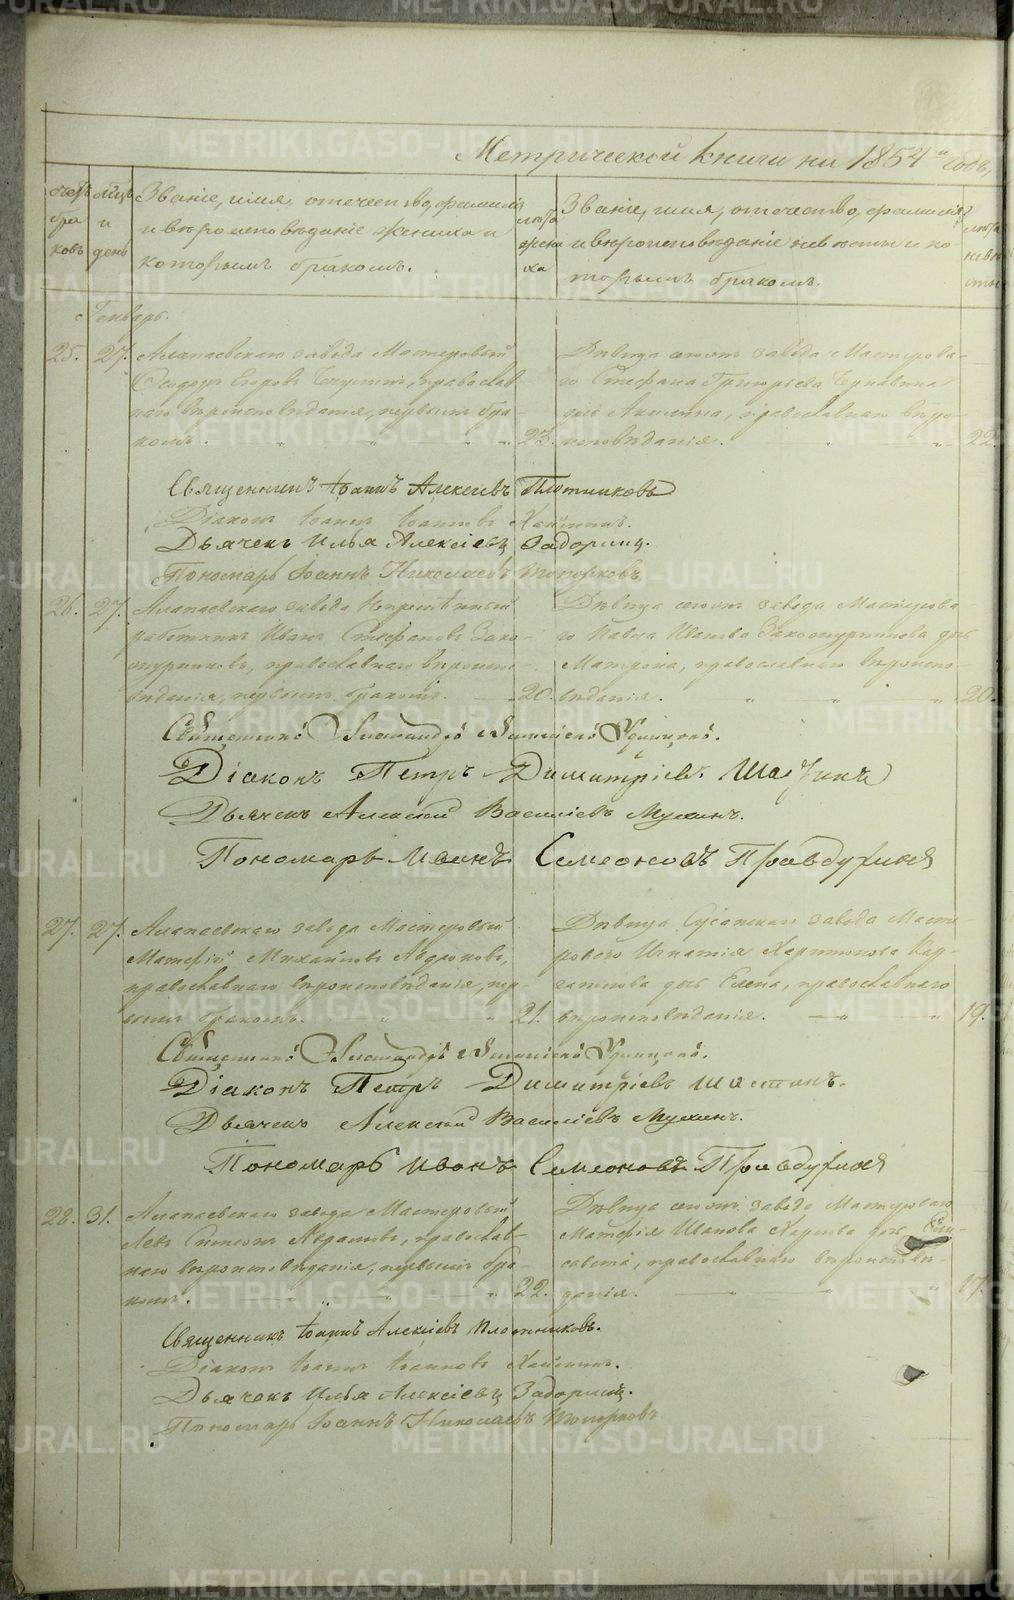 Метрической книги на 1854й годъ,
счетъ браковъ
мѣсяцъ и день
Званіе, имя, отечество, фамилія
и вѣроисповѣданіе жениха и
которымъ бракомъ.
лѣта жениха
Званіе, имя, отечество, фамилія
и вѣроисповѣданіе невѣсты и ко
торымъ бракомъ.
лѣта невѣсты
Генварь.
25. 27. Алапаевскаго завода Мастеровый
Ѳеодоръ Егоровъ православ
наго вѣроисповѣданія, первымъ бра
комъ. 23.
Дѣвица завода Мастерова-
го Стефана Григорьева
дочь Акилина, православнаго вѣро-
исповѣданія. 22.
Священникъ Іоаннъ Алексіевъ Плотниковъ
Діаконъ Іоаннъ Іоанновъ
Дьячекъ Илья Алексіевъ Задоринъ.
Пономарь Іоаннъ Николаевъ Топорковъ
26. 27. Алапаевскаго завода
работникъ Иванъ Стефановъ Зако-
опурниковъ, православнаго вѣроиспо-
вѣданія, первымъ бракомъ. 20.
Дѣвица завода Мастерова-
го Павла Иванова дочь
Матрона, православнаго вѣроиспо-
вѣданія. 20.
Священникъ Александръ Удинцовъ.
Діаконъ Петръ Димитріевъ Шастинъ
Дьячекъ Алексей Василіевъ Мухинъ.
Пономарь Иванъ Симеоновъ Правдухинъ
27. 27. Алапаевскаго завода Мастеровый
Матфій Михайловъ Авдюковъ,
православнаго вѣроисповѣданія, пер-
вымъ бракомъ. 21.
Дѣвица Сусанскаго завода Масте-
роваго Игнатія Харитонова
дочь Елена, православнаго
вѣроисповѣданія. 19.
Священникъ Александръ Удинцовъ.
Діаконъ Петръ Димитріевъ Шастинъ.
Дьячекъ Алексей Василіевъ Мухинъ.
Пономарь Иванъ Симеоновъ Правдухинъ
28. 31. Алапаевскаго завода Мастеровый
Левъ Абрамовъ, православ-
наго вѣроисповѣданія, первымъ бра-
комъ. 22.
Дѣвица завода Мастероваго
Матфія Иванова дочь Ели-
савета, православнаго вѣроисповѣ-
данія. 17.
Священникъ Іоаннъ Алексіевъ Плотниковъ.
Діаконъ Іоаннъ Іоанновъ
Дьячекъ Илья Алексіевъ Задоринъ.
Пономарь Іоаннъ Николаевъ Топорковъ
METRIKI.GASO-URAL.RU